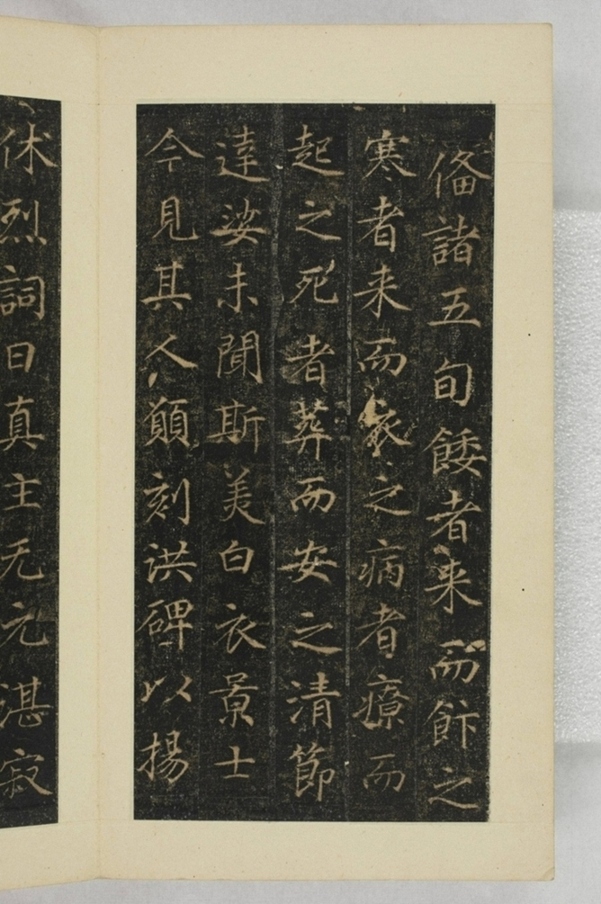 俻諸五旬餧者来而飰之
寒者来而衣之病者療而
起之死者葬而安之清節
達娑未聞斯美白衣景士
今見其人願刻洪碑以揚
休烈詞曰真主无元湛寂